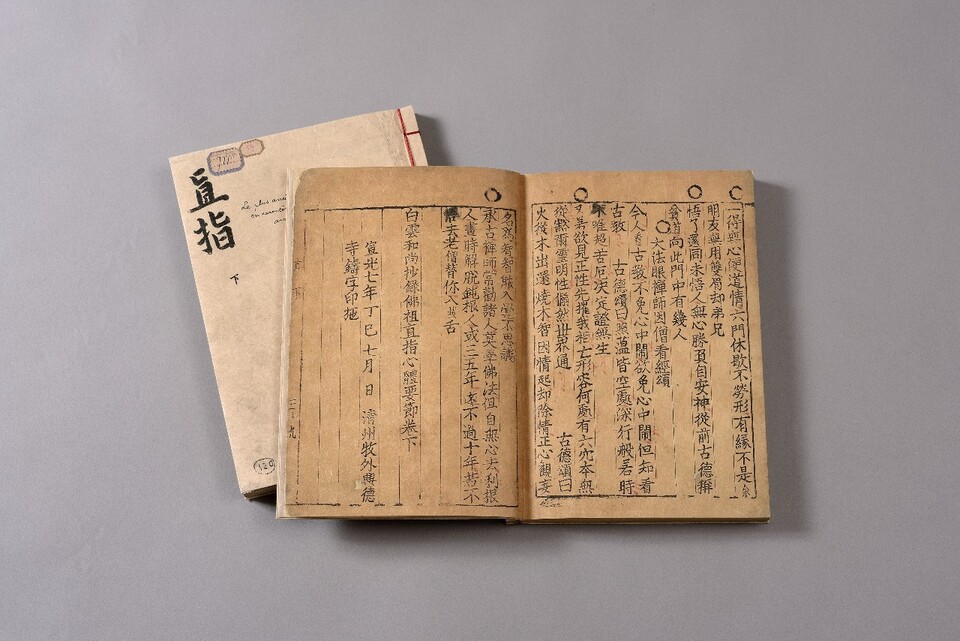 直指
下
Le plus anc
一得無心便道情六門休歇不勞形有緣不是
朋友無用雙眉却弟兄
悟了還同未悟人無心勝負自安神從前古德稱
貧道向此門中有幾人
大法眼禪師因僧看經頌
今人看古敎不免心中鬧欲免心中鬧但知看
古敎 古德頌曰照薀皆空處深行般若時
唯超苦厄決定證無生
欲見正性先摧我相亡形容何處有六穴本無
從默爾靈明性儼然世界通 古德頌曰
火從木出還燒木智因情起却除情正心觀妄
名爲智智能入空不思議
永古禪師常勸諸人莫學佛法但自無心去利根
人晝時解脫鈍根人或三五年遠不過十年若不
悟去老僧替你入舌
白雲和尚抄錄佛祖直指心體要節卷下
宣光七年丁巳七月 日 淸州牧外興德
寺鑄字印施
109